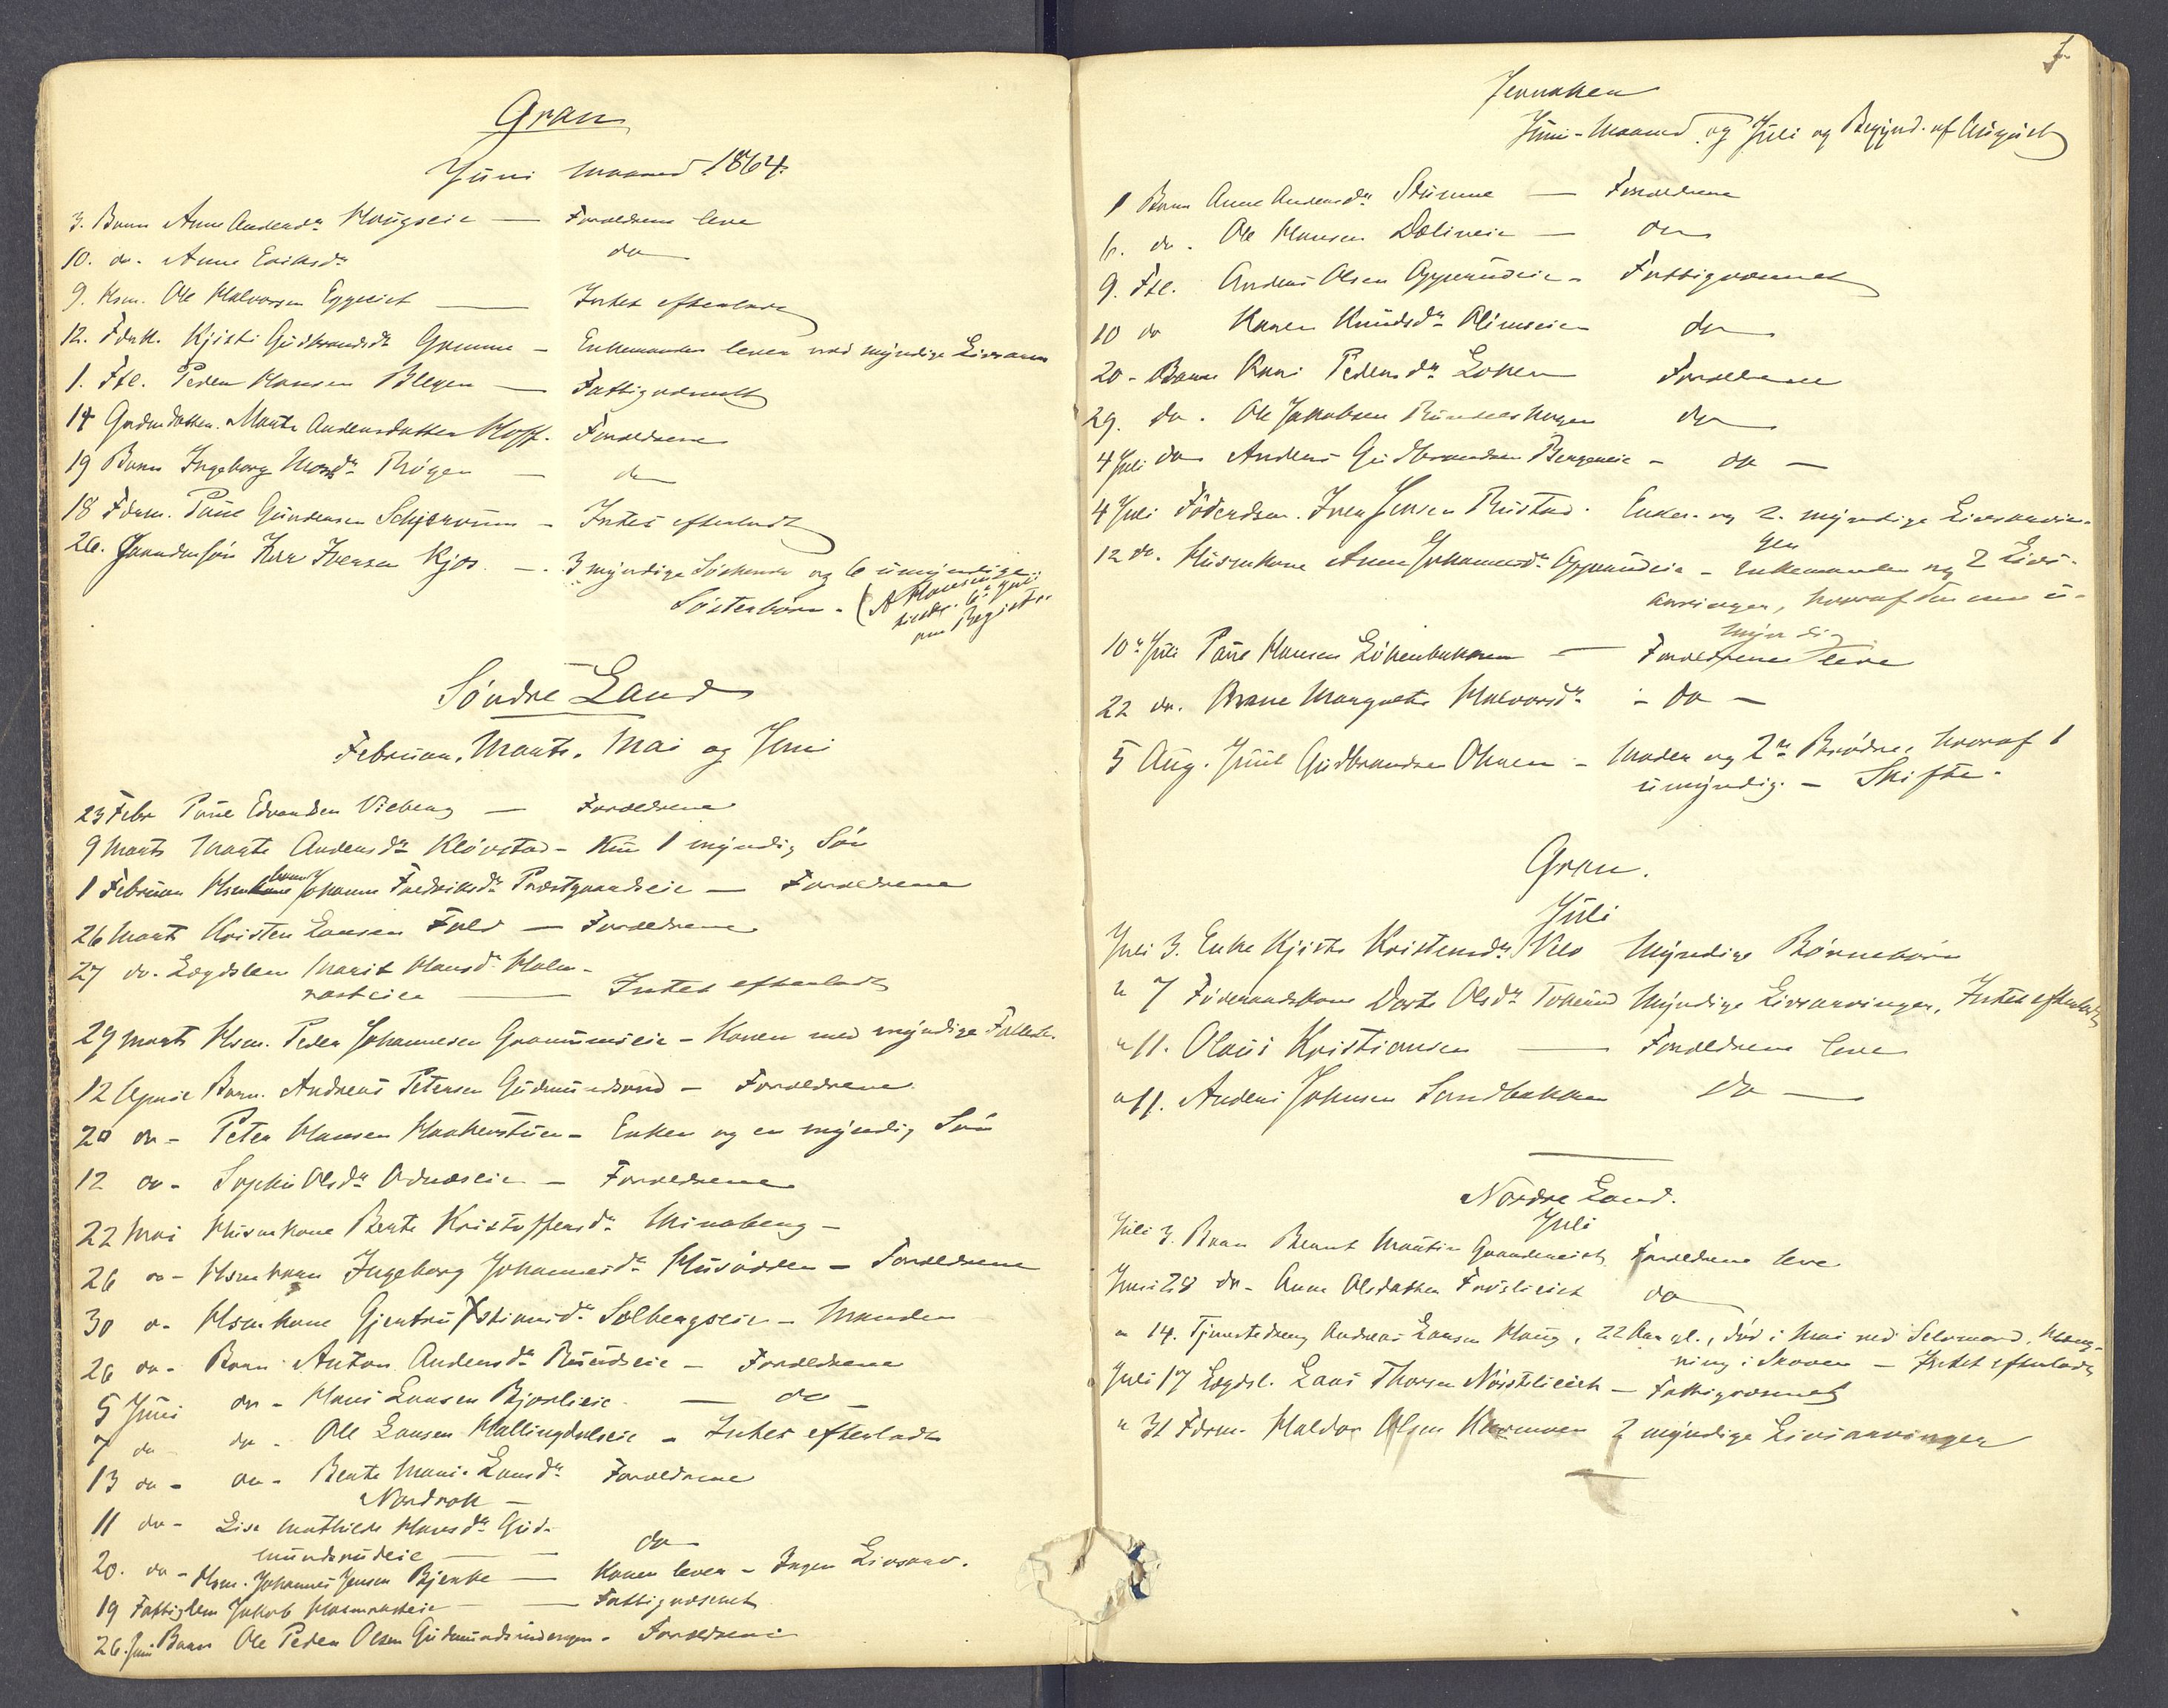 Gran
Juni Maaned 1864.
3. Barn Anne Andersdr Haugseie — Forældrene leve
10. do. Anne Eriksdr do
9. Hsm. Ole Halvorsen Eggeeiet — Intet efterladt
12. Fdrk. Kjisti Gudbrandsdr Gamme — Enkemanden lever med myndige Livsarv
1. Ftl. Peder Hansen Blegen — Fattigvæsnet
14 Gaardmdatter. Marte Andersdatter Hoff. Forældrene
19 Barn Ingeborg Monsdr Røgen — do
18 Fdrm. Paul Gundersen Schjervum — Intet efterladt
26. Gaardmsøn Iver Iversen Kjos. — 3 myndige Søskende og 6 umyndige
Søsterbørn. — (A Hansen
6te Juli
om Registr.
Søndre Land
Februar, Marts, Mai og Juni
23 Febr Paul Edvardsen Vieberg — Forældrene
9 Marts Marte Andersdr Kløvstad — Kun 1 myndig Søn
1 Februar Hsmbarn Johanne Fredriksdr Præstgaardseie — Forældrene
26 Marts Kristen Larsen Fald — Forældrene
27 do. Lægdslem Marit Hansdr Halm-
rasteie — Intet efterladt
29 Marts Hsm. Peder Johannesen Granumseie — Konen med myndige Fællesb.
12 April Barn. Andreas Petersen Gudmundsrud — Forældrene
20 do — Peter Hansen Haakenstuen — Enken og en myndig Søn
12 do — Sophie Olsdr Odnæseie — Forældrene
22 Mai Husmkone Berte Kristoffersdr Skinaberg —
26 do — Hsmbarn Ingeborg Johannesdr Husodden — Forældrene
30 do Hsmkone Gjertru Xstiansdr Sølbergseie — Manden
26 do — Barn Anton Andersdr Ruudseie — Forældrene
5 Juni do — Hans Larsen Bjørlieie — do —
7 do do — Ole Larsen Hallingdalseie — Intet efterladt
13 do — do — Berte Marie Larsdr Forældrene
Nordrak —
11 do — Lise Mathilde Hansdr Gud-
mundsrudeie — do
20. do — Hsm. Johannes Jensen Bjerke — Konen lever — Ingen Livsarv.
19 Fattiglem Jakob Halmrasteie — Fattigvæsnet
26. Juni Barn Ole Peder Olsen Gudmundsrudengen. Forældrene
Jevnaker
Juni-Maaned og Juli og Begynd. af August
1 Barn Anne Andersdr Stumne — Forældrene
6. do. Ole Hansen Dælineie — do
9. Ftl. Anders Olsen Opperudeie — Fattigvæsnet
10 do Karen Knudsdr Olimseie do
20 — Barn Kari Pedersdr Loken Forældrene
29. do. Ole Jakobsen Rundelshagen do
4 Juli do Anders Gudbrandsen Bergereie — do —
4 Juli Føderdsm. Iver Jensen Rustad. Enken og 2 myndige Livsarvin-
ger
12 do. Husmkone Anne Johannesdr Opperudeie — Enkemanden og 2 Livs-
arvinger, hvoraf den ene u-
myndig
10de Juli Paul Hansen Løkenbakken — Forældrene leve
22 do. Anne Margrethe Halvorsdr — do —
5 Aug. Juul Gudbrandsen Oknen — Moder og 2de Brødre, hvoraf 1
umyndig. — Skifte.
Gran.
Juli
Juli 3. Enke Kjisti Kristensdr Vien Myndige Børnebørn
" 7 Føderaadskone Dorte Olsdr Tokerud Myndige Livsarvinger, Intet efterladt
" 11. Olaus Kristiansen — Forældrene leve
" 11. Anders Johnsen Sandbakken do —
Nordre Land.
Juli
Juli 3. Barn Bernt Martin Gaardereiet Forældrene leve
Juni 28 do — Anne Olsdatter Frøslieiet do
" 14. Tjenestedreng Andreas Larsen Haug, 22 Aar gl., død i Mai ved Selvmord, Hæng-
ning i Skoven — Intet efterladt
Juli 17 Lægdsl. Lars Thorsen Nørstelieiet — Fattigvæsnet
" 31 Fdrm. Haldor Olsen Kværnven 2 myndige Livsarvinger